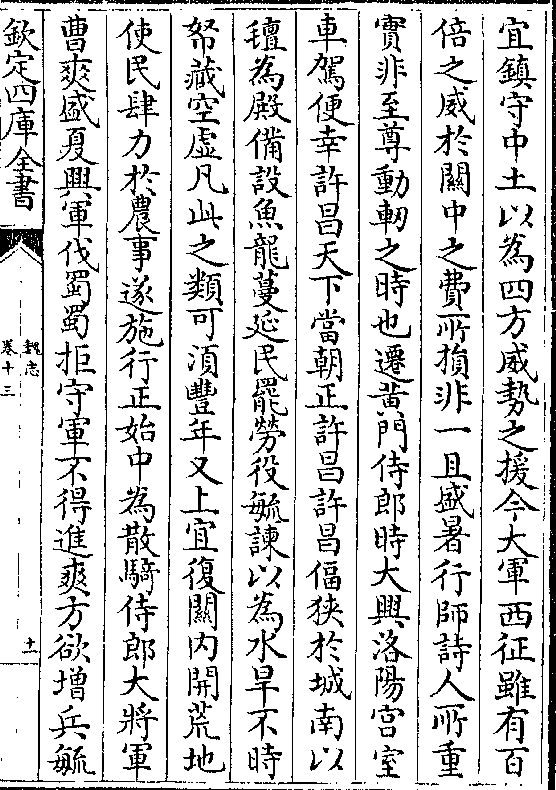 宜鎮守中土以為四方威勢之援今大軍西征雖有百
倍之威於關中之費所損非一且盛暑行師詩人所重
實非至尊動軔之時也遷黃門侍郎時大興洛陽宮室
車駕便幸許昌天下當朝正許昌許昌偪狹於城南以
氊為殿備設魚龍蔓延民罷勞役毓諫以為水旱不時
帑藏空虛凡此之類可須豐年又上宜復關内開荒地
使民肆力於農事遂施行正始中為散騎侍郎大將軍
曹爽盛夏興軍伐蜀蜀拒守軍不得進爽方欲增兵毓
欽定四庫全書
魏志
卷十三
十一